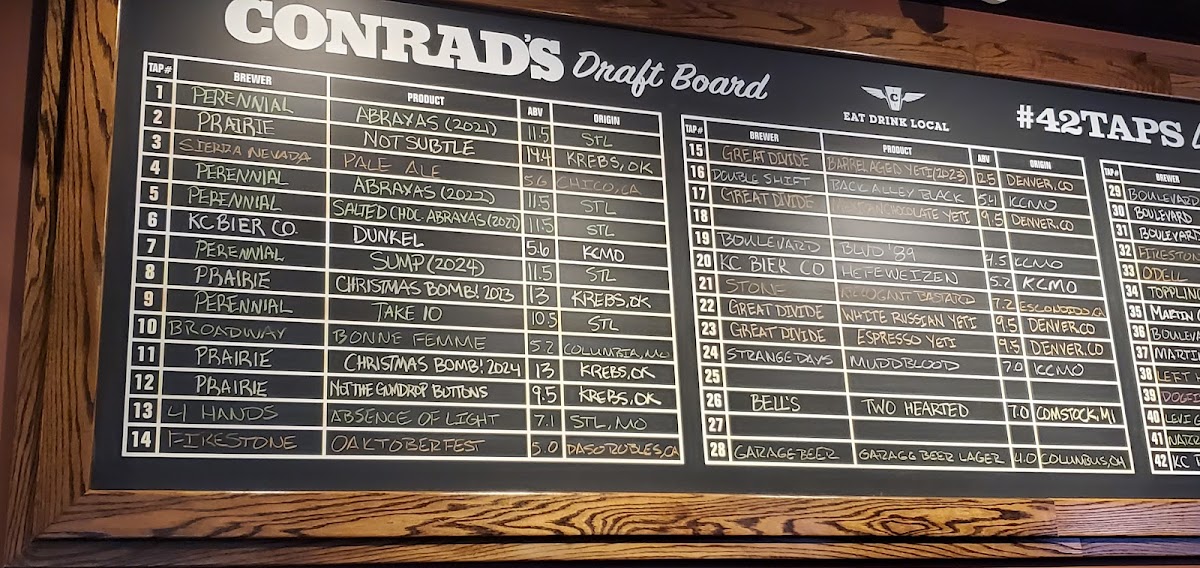 CONRAD'S Draft Board
EAT DRINK LOCAL
#42TAPS
TAP # BREWER PRODUCT ABV ORIGIN
1 PERENNIAL ABRAXAS (2021) 11.5 STL
2 PRAIRIE NOT SUBTLE 14.4 KREBS, OK
3 SIERRA NEVADA PALE ALE 5.6 CHICO, CA
4 PERENNIAL ABRAXAS (2022) 11.5 STL
5 PERENNIAL SALTED CHOC. ABRAXAS (2022) 11.5 STL
6 KC BIER CO. DUNKEL 5.6 KCMO
7 PERENNIAL SUMP (2024) 11.5 STL
8 PRAIRIE CHRISTMAS BOMB! 2023 13 KREBS, OK
9 PERENNIAL TAKE 10 10.5 STL
10 BROADWAY BONNE FEMME 5.2 COLUMBIA, MO
11 PRAIRIE CHRISTMAS BOMB! 2024 13 KREBS, OK
12 PRAIRIE NOT THE GUMDROP BUTTONS 9.5 KREBS, OK
13 4 HANDS ABSENCE OF LIGHT 7.1 STL, MO
14 FIRESTONE OAKTOBERFEST 5.0 PASO ROBLES, CA
TAP # BREWER PRODUCT ABV ORIGIN
15 GREAT DIVIDE BARREL AGED YETI (2023) 12.5 DENVER, CO
16 DOUBLE SHIFT BACK ALLEY BLACK 5.4 KCMO
17 GREAT DIVIDE CHOCOLATE YETI 9.5 DENVER, CO
18
19 BOULEVARD BLVD '89 4.5 KCMO
20 KC BIER CO HEFEWEIZEN 5.2 KCMO
21 STONE ARROGANT BASTARD 7.2 ESCONDIDO, CA
22 GREAT DIVIDE WHITE RUSSIAN YETI 9.5 DENVER, CO
23 GREAT DIVIDE ESPRESSO YETI 9.5 DENVER, CO
24 STRANGE DAYS MUDDBLOOD 7.0 KCMO
25
26 BELL'S TWO HEARTED 7.0 COMSTOCK, MI
27
28 GARAGE BEER GARAGG BEER LAGER 4.0 COLUMBUS, OH
TAP # BREWER
29 BOULEVARD
30 BOULEVARD
31 BOULEVARD
32 FIRESTON
33 ODELL
34 TOPPLIN
35 MARTIN
36 BOULEVA
37 MARTI
38 LEFT
39 DOGFI
40 LEVI
41 NARR
42 KC